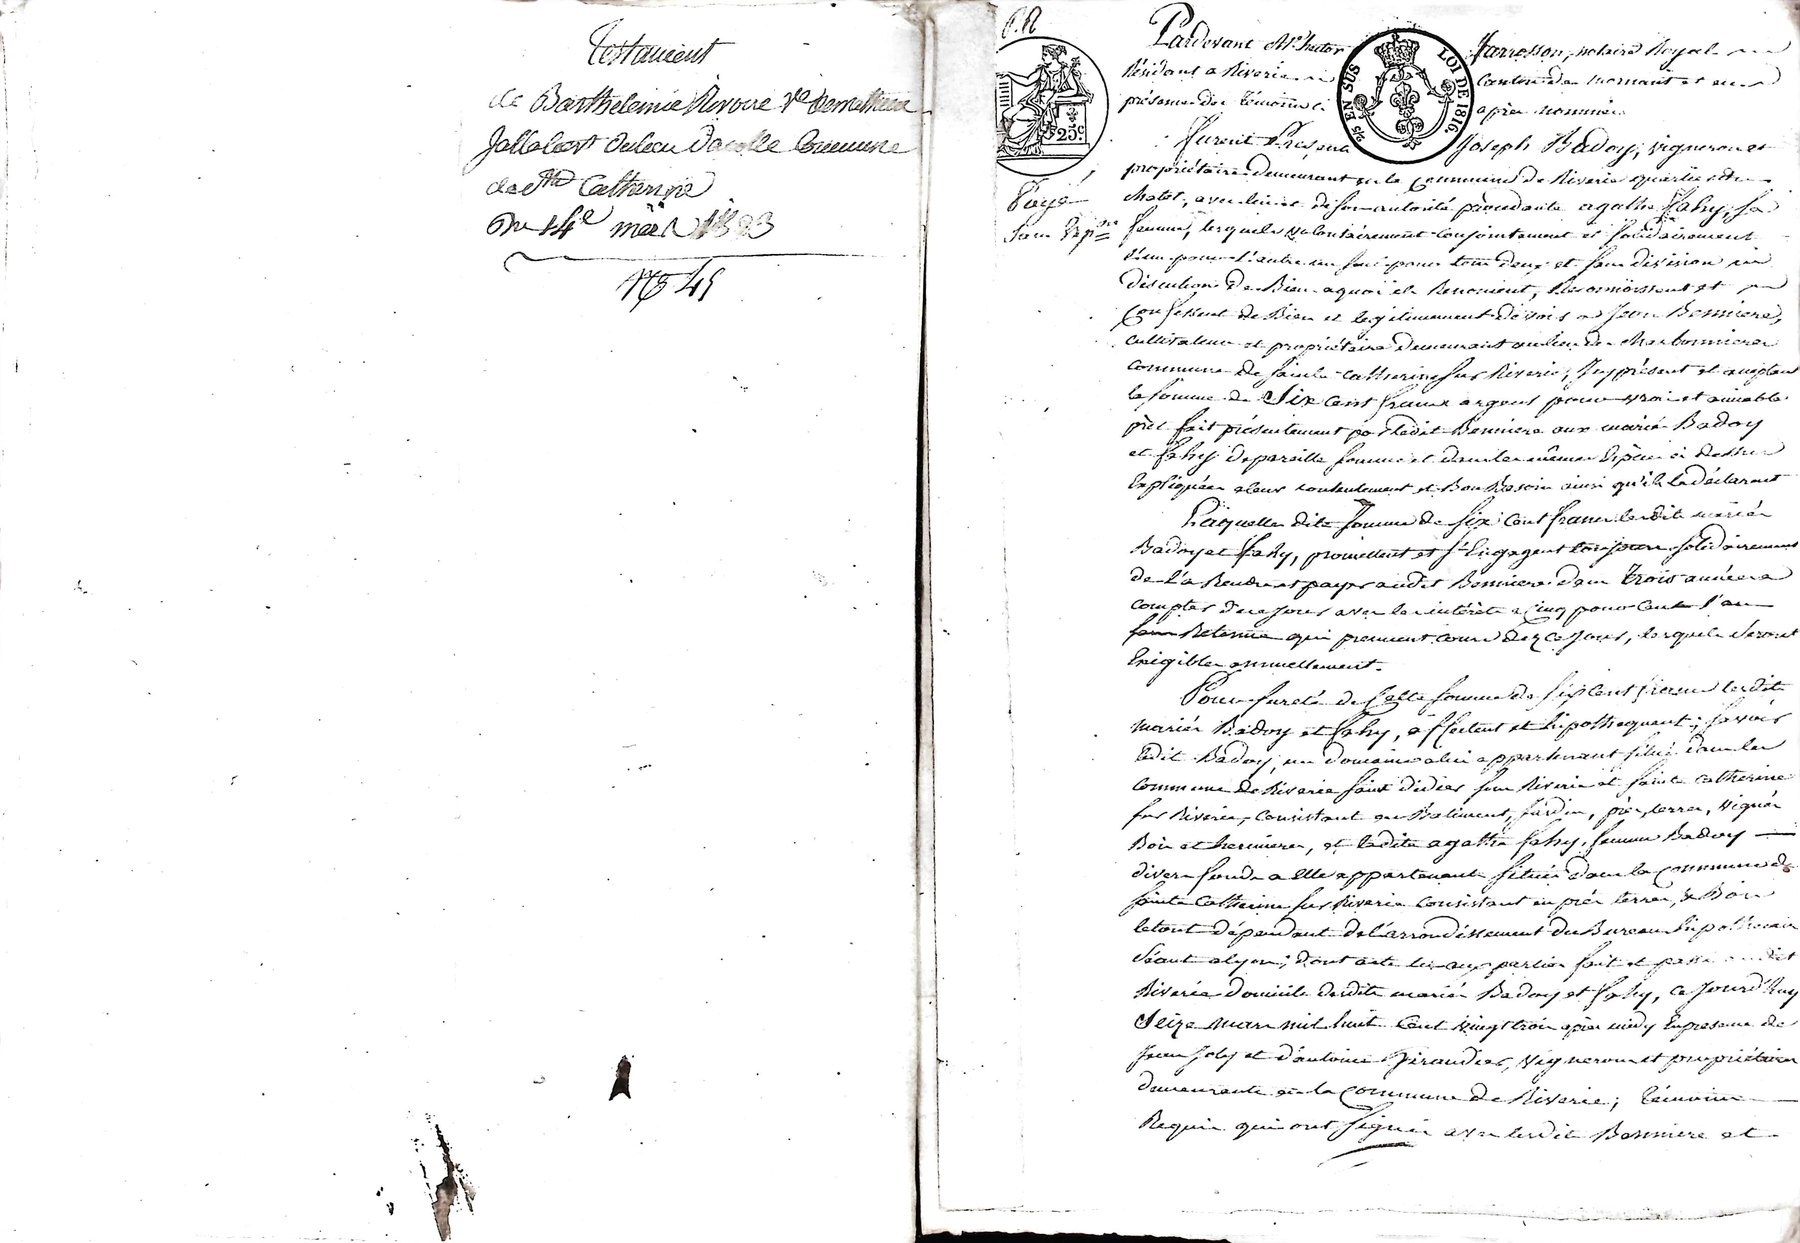 Testament
de Barthelemie Rivoire Ve de mathieu
Jallabert du lieu d'acolle Commune
de Ste Catherine
Du 14e mars 1823
No 45
P.R
25 c.
2/5 EN SUS LOI DE 1816
Pardevant Me hector Jarrosson, notaire Royal
Résidant a Riverie canton de mornant et en
présence des témoins ci après nommés
Payé
Sans Exp.on
furent Présents Joseph Badoy, vigneron et
propriétaire demeurant en la commune de Riverie quartier du
chatel, avec lui et de son autorité procedante agathe fahy, sa
femme, lesquels volontairement conjointement et solidairement
l'un pour l'autre un seul pour tous deux et sans division ni
discution de Bien a quoi ils Renoncent, Reconnoissent et
Confessent de Bien et legitimement devoir a Jean Bonniere,
cultivateur et propriétaire demeurant au lieu de charbonnieres
commune de sainte catherine sur Riverie, Icy présent et acceptant
la somme de Six cent francs argent pour vrai et amiable
prêt fait présentement par ledit Bonniere aux mariés Badoy
et fahy de pareille somme et dans les mêmes Espèces ci dessus
Expliquées a leur contentement et Bon Besoin ainsi qu'ils le déclarent
Laquelle dite somme de six cent francs lesdits mariés
Badoy et fahy, promettent et s'Engagent toujours solidairement
de la Rendre et payer audit Bonniere dans trois années a
compter de ce jour avec les intérêts a Cinq pour cent l'an
sans Retenue qui prennent cours dez ce jour, lesquels seront
Exigibles annuellement.
Pour sureté de Cette somme de six cent francs lesdits
mariés Badoy et fahy, affectent et hipothequent; savoir
ledit Badoy, un domaine a lui appartenant situé dans les
communes de Riverie saint didier sous Riverie et sainte catherine
sur Riverie, Consistant en Batiments, Jardin, prés, terres, vignes
Bois et hermieres, et ladite agathe fahy, femme Badoy
divers fonds a Elle appartenants situés dans la commune de
sainte Catherine sur Riverie Consistant en prés terres, & Bois
le tout dépendant de l'arrondissement du Bureau hipothécaire
séant a lyon; dont acte lu aux parties fait et passé audit
Riverie domicile desdits mariés Badoy et fahy, ce Jourd'huy
Seize mars mil huit Cent vingt trois après midy En presence de
Jean Joly et d'antoine Giraudier, vignerons et propriétaires
demeurants en la commune de Riverie; témoins
Requis qui ont signés avec ledit Bonniere et